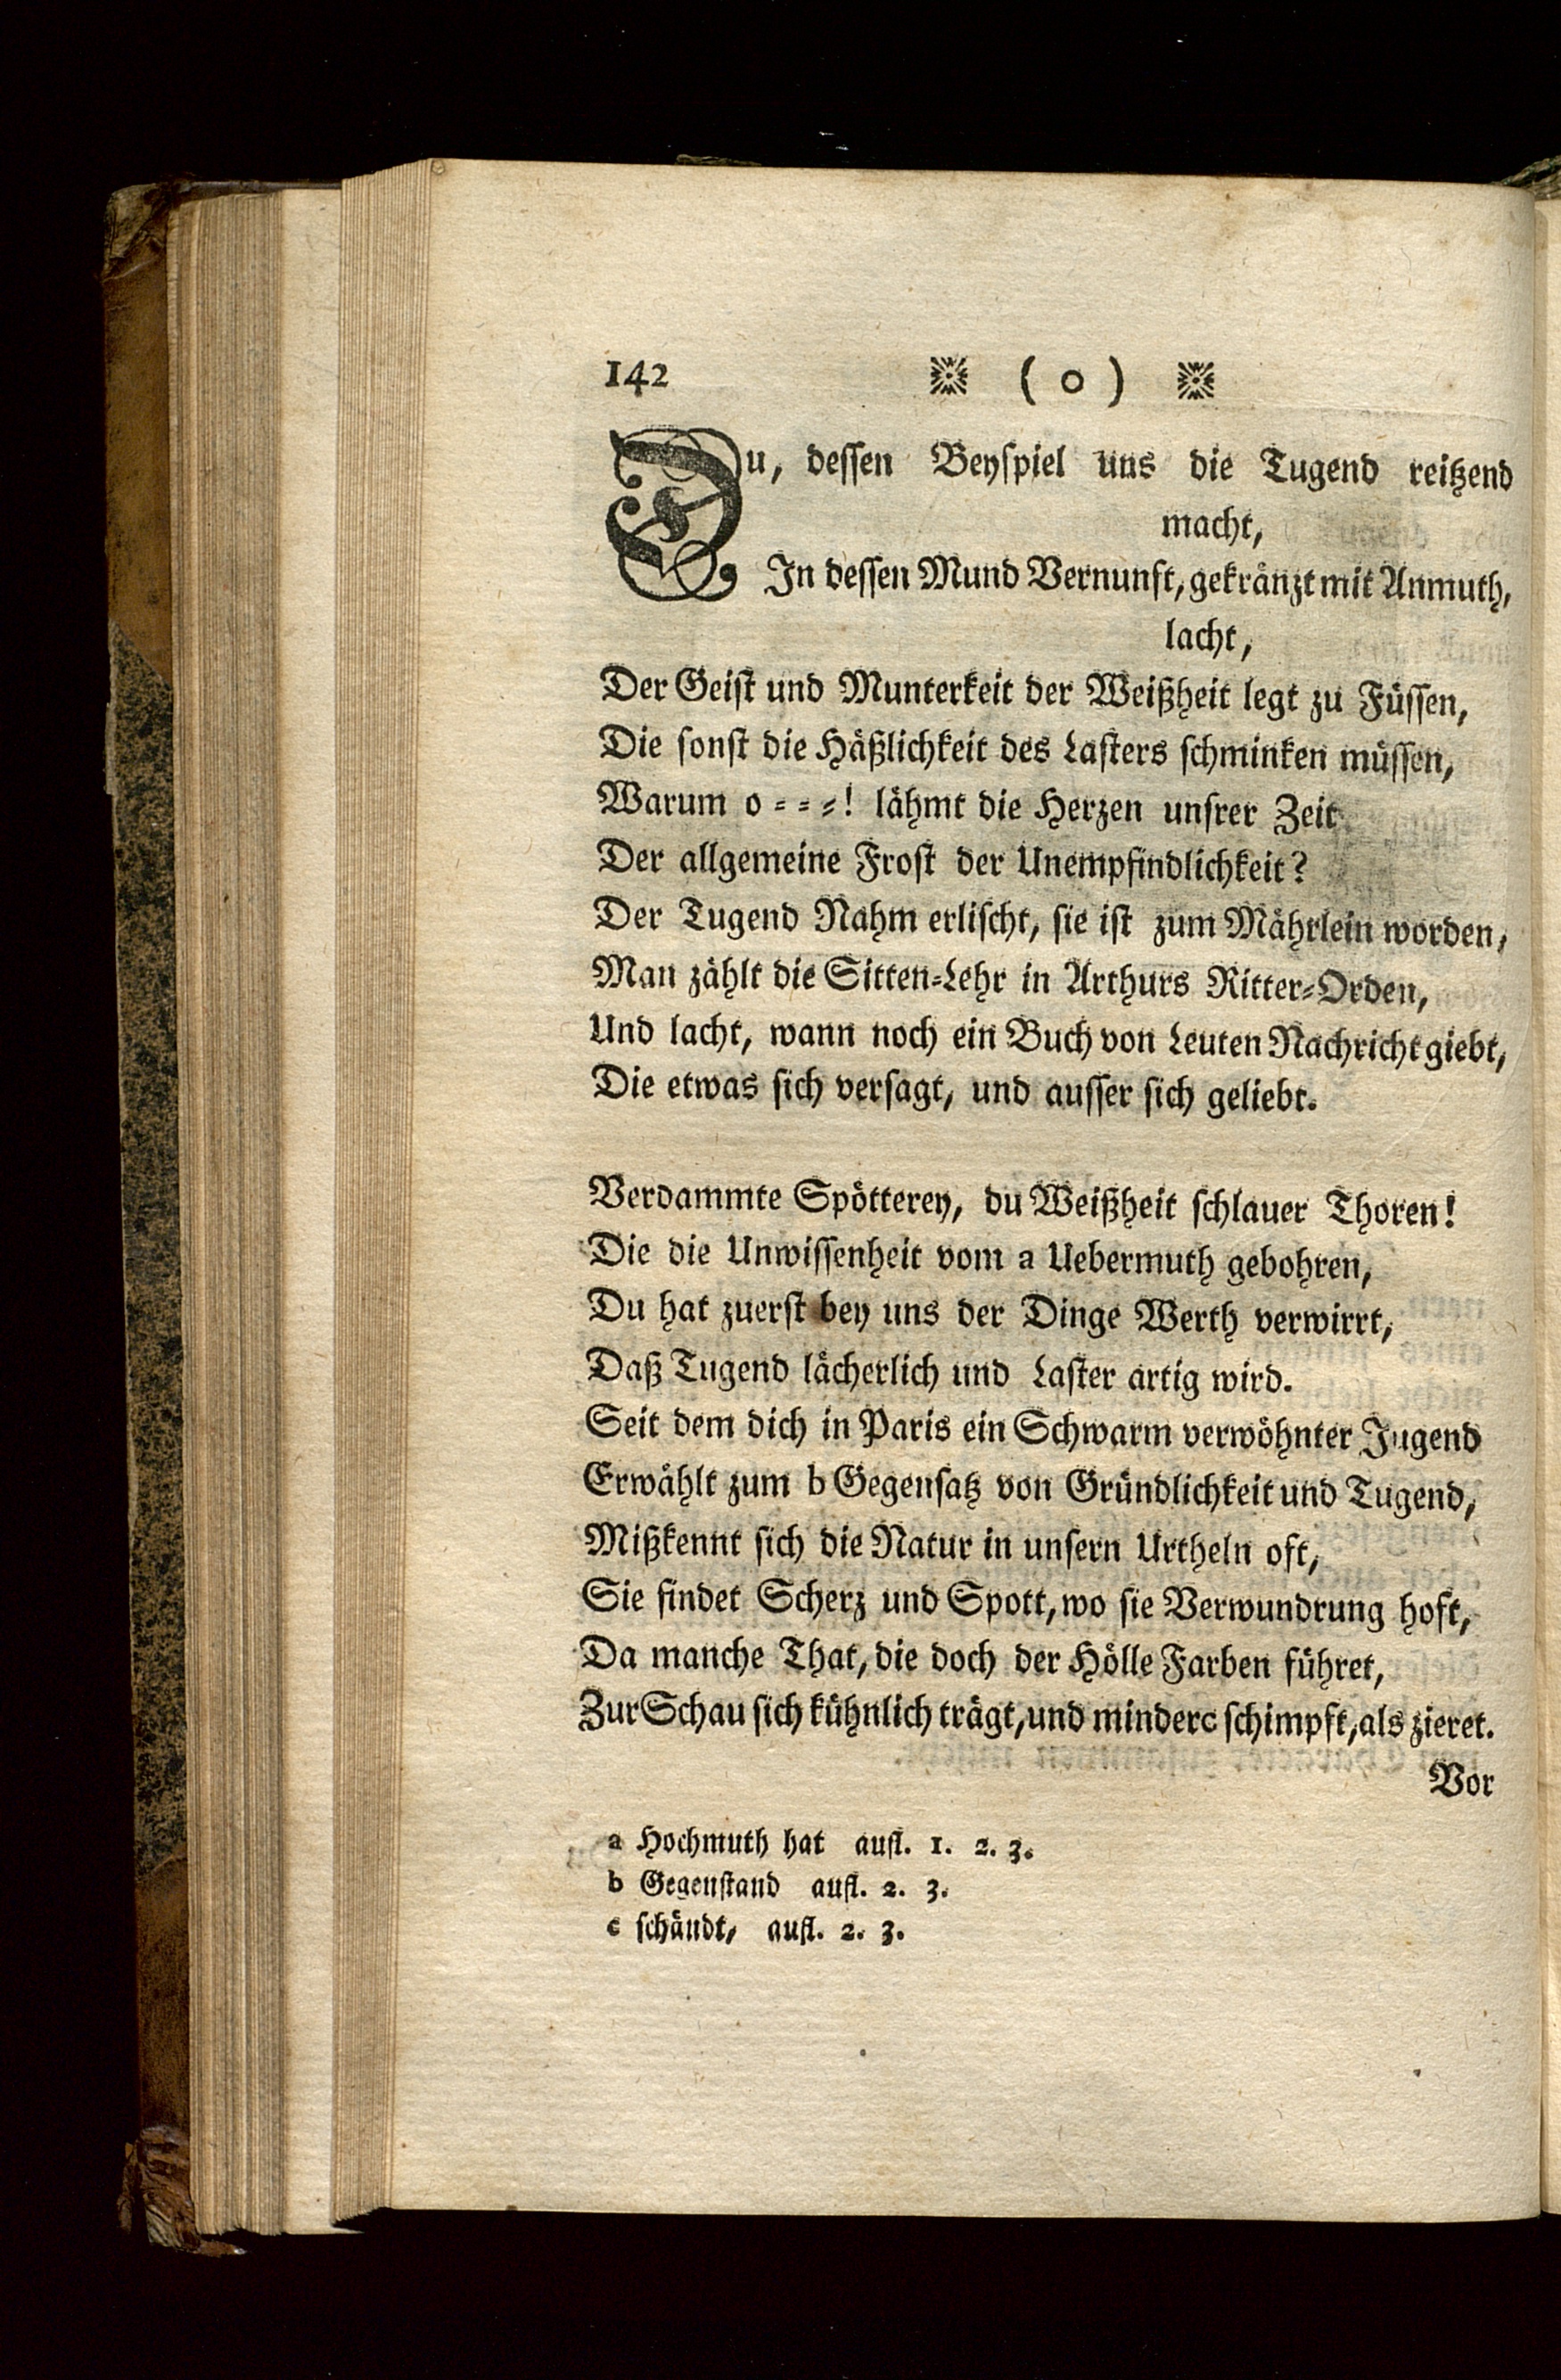 142 ※ ( o ) ※
Du, dessen Beyspiel uns die Tugend reitzend
macht,
In dessen Mund Vernunft, gekränzt mit Anmuth,
lacht,
Der Geist und Munterkeit der Weißheit legt zu Füssen,
Die sonst die Häßlichkeit des Lasters schminken müssen,
Warum o = = =! lähmt die Herzen unsrer Zeit
Der allgemeine Frost der Unempfindlichkeit?
Der Tugend Nahm erlischt, sie ist zum Mährlein worden,
Man zählt die Sitten=Lehr in Arthurs Ritter=Orden,
Und lacht, wann noch ein Buch von Leuten Nachricht giebt,
Die etwas sich versagt, und ausser sich geliebt.
Verdammte Spötterey, du Weißheit schlauer Thoren!
Die die Unwissenheit vom a Uebermuth gebohren,
Du hat zuerst bey uns der Dinge Werth verwirrt,
Daß Tugend lächerlich und Laster artig wird.
Seit dem dich in Paris ein Schwarm verwöhnter Jugend
Erwählt zum b Gegensatz von Gründlichkeit und Tugend,
Mißkennt sich die Natur in unsern Urtheln oft,
Sie findet Scherz und Spott, wo sie Verwundrung hoft,
Da manche That, die doch der Hölle Farben führet,
Zur Schau sich kühnlich trägt, und minder c schimpft, als zieret.
Vor
a Hochmuth hat aufl. 1. 2. 3.
b Gegenstand aufl. 2. 3.
c schändt, aufl. 2. 3.